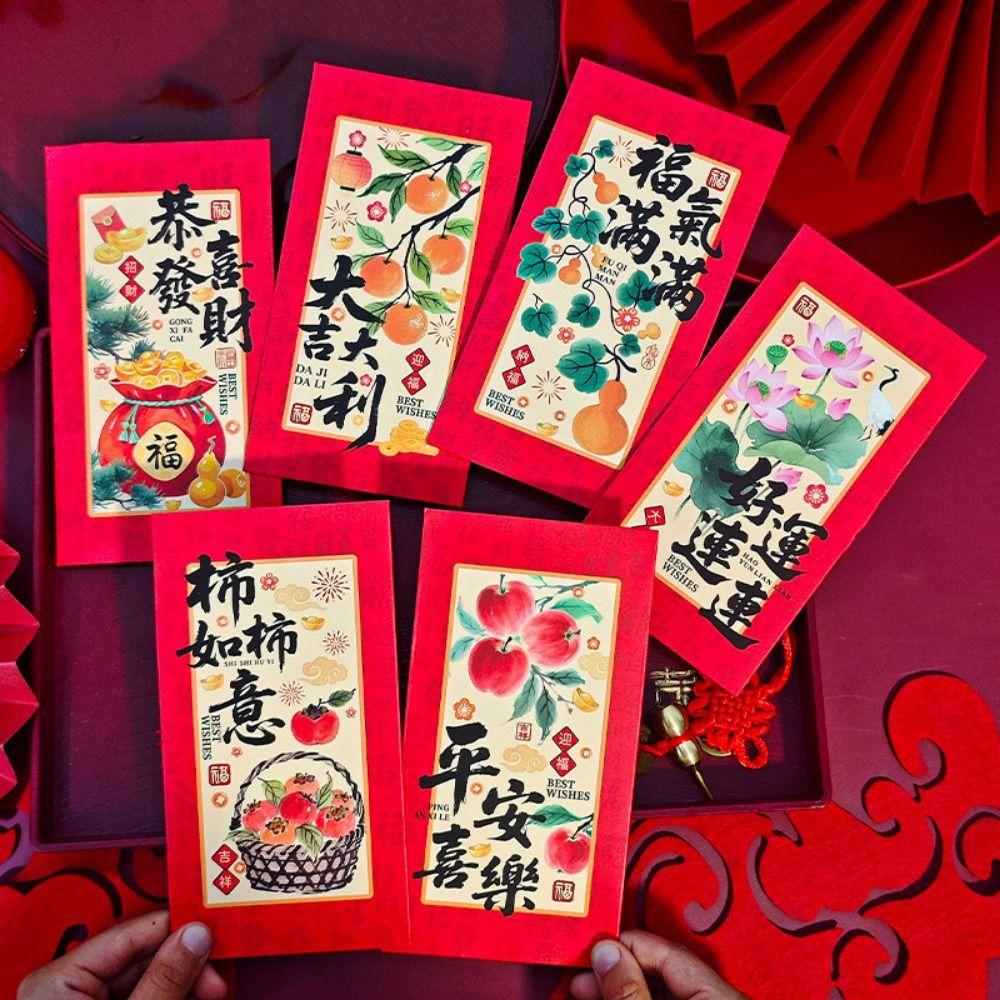 恭喜
發財
GONG
XI FA
CAI
福
招財
福
BEST
WISHES
福
大吉
大利
DA JI
DA LI
迎福
BEST
WISHES
福
福氣
滿滿
FU QI
MAN
MAN
福
納福
BEST
WISHES
福
好運
連連
HAO
YUN LIAN
LIAN
BEST
WISHES
柿柿
如意
SHI SHI RU YI
BEST
WISHES
福
吉祥
平安
喜樂
PING
AN XI LE
吉祥
迎福
BEST
WISHES
福